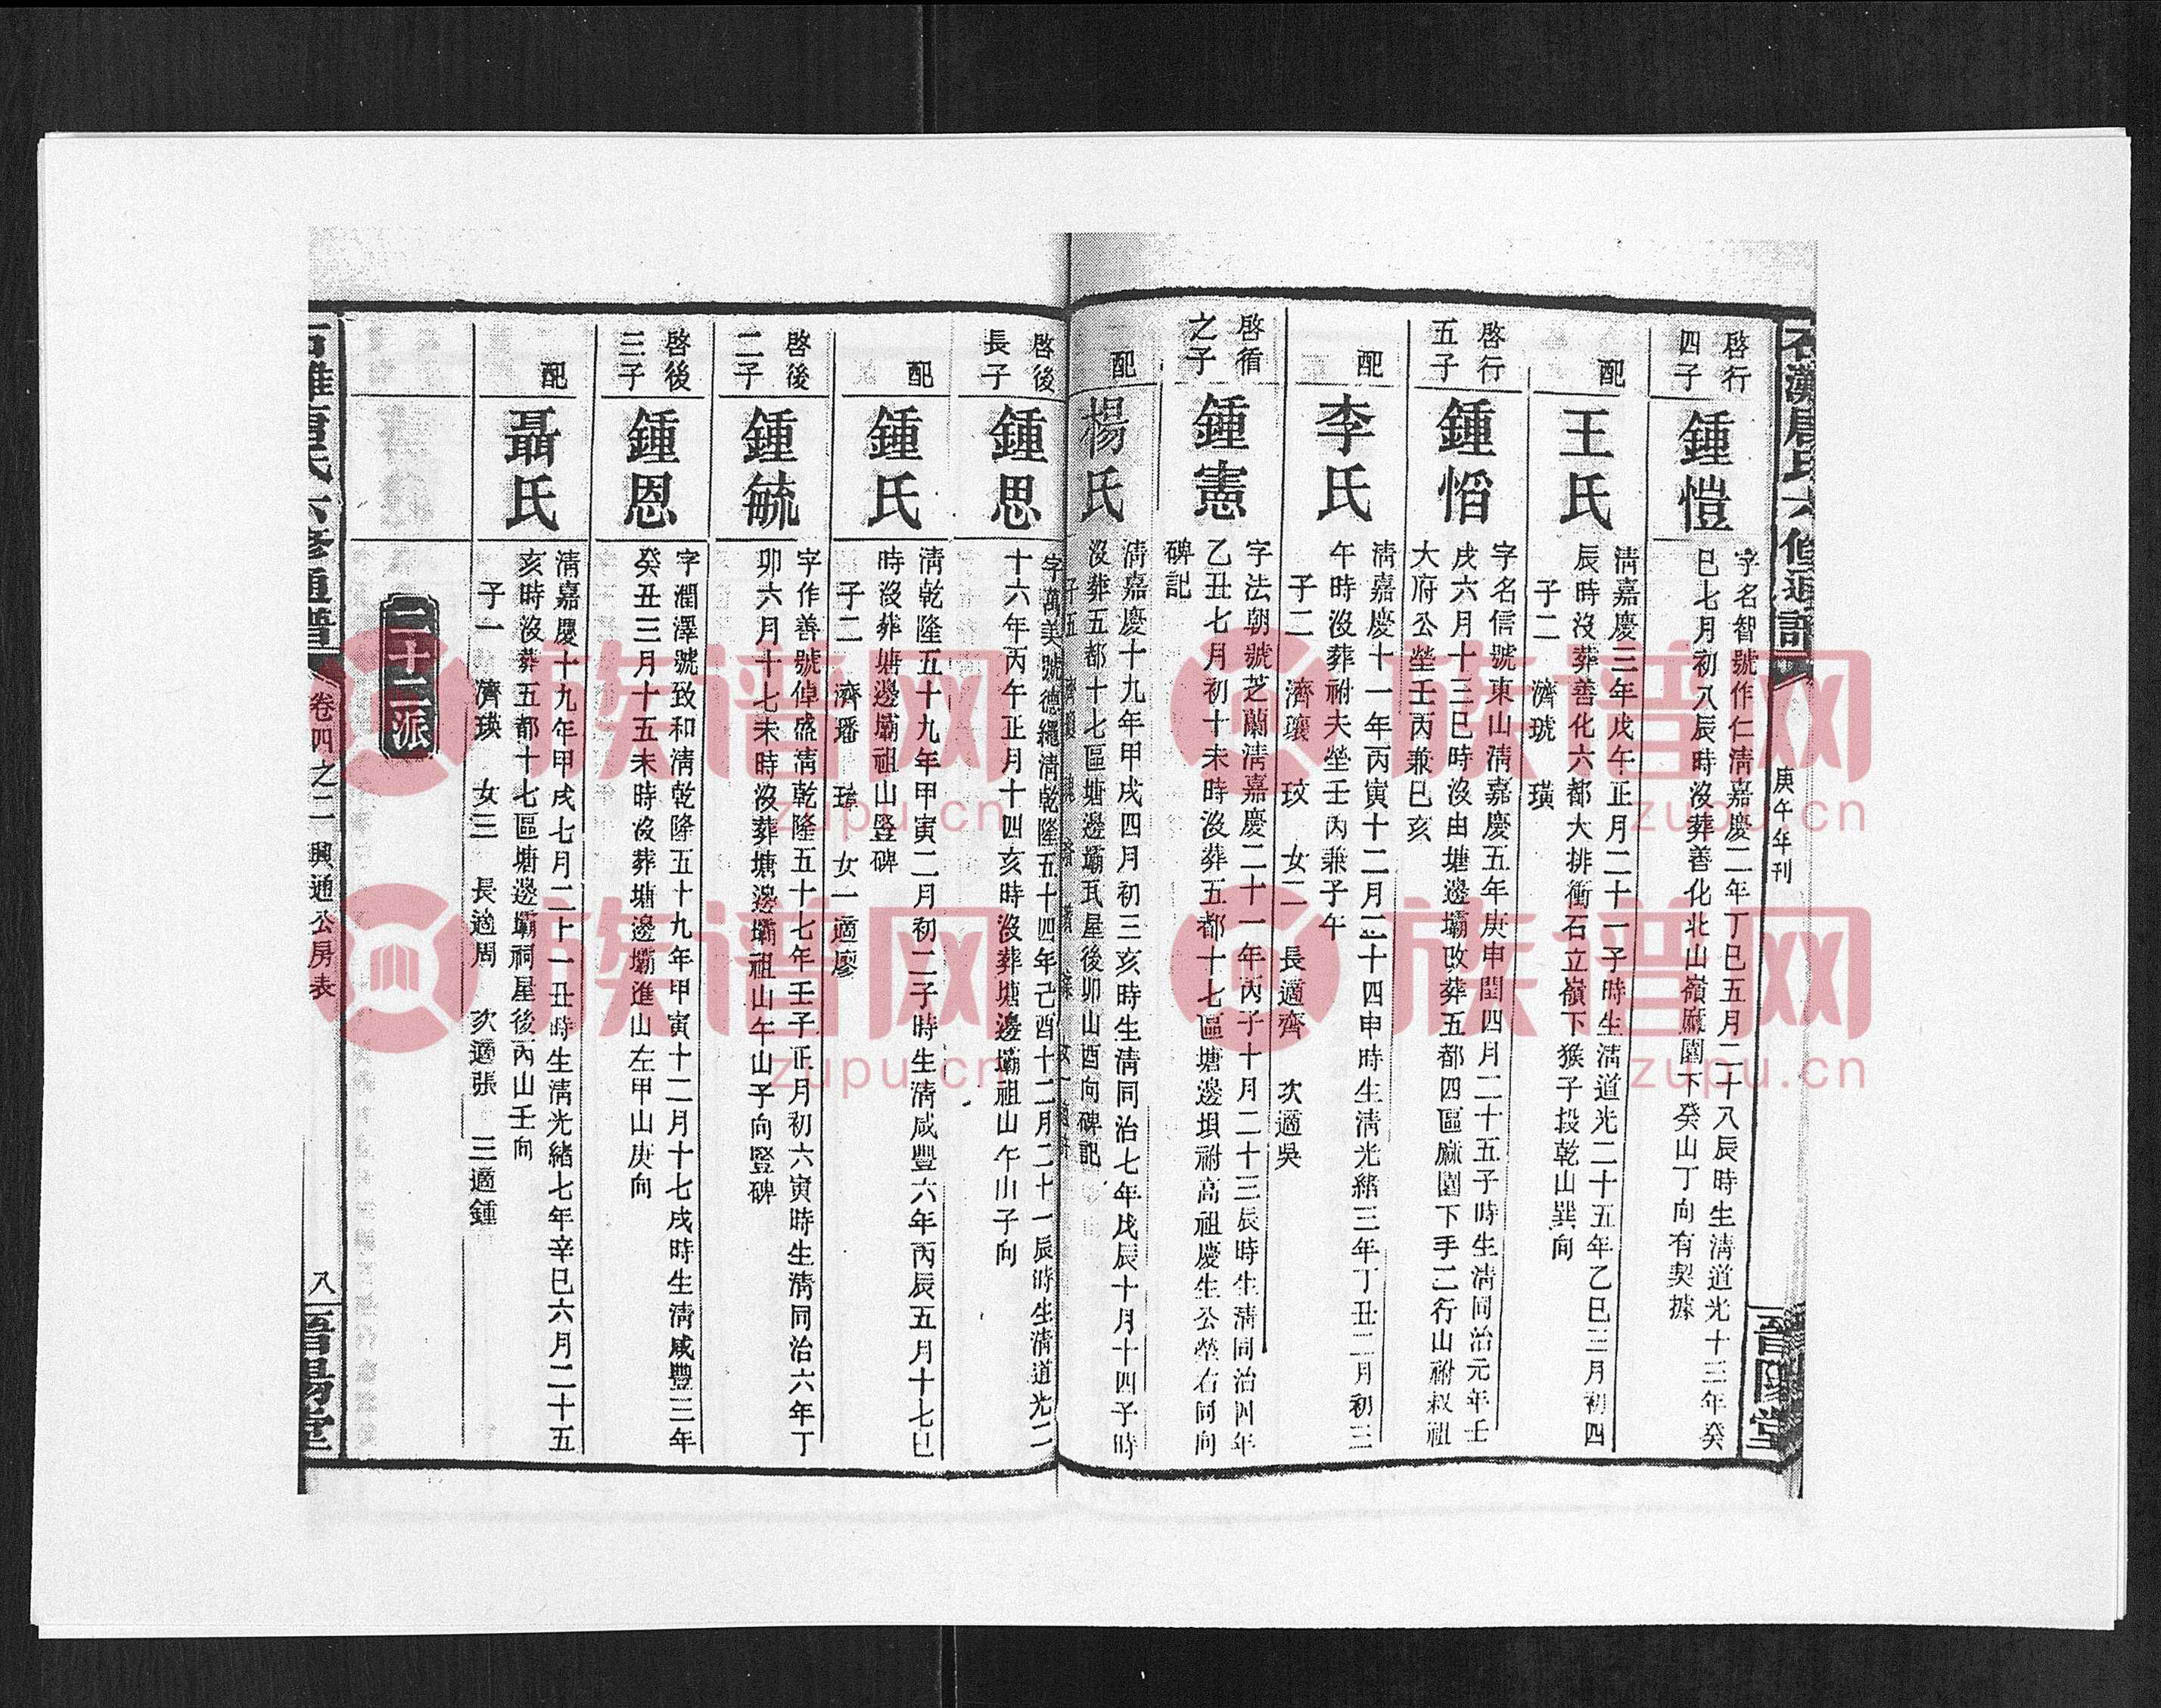 庚午年刊
晉陽堂
啓行
四子
鍾愷
字名智號作仁清嘉慶二年丁巳五月二十八辰時生清道光十三年癸
巳七月初八辰時沒葬善化北山嶺廕園下癸山丁向有契據
配
王氏
清嘉慶三年戊午正月二十一子時生清道光二十五年乙巳三月初四
辰時沒葬善化六都大排衝石立嶺下猴子投乾山巽向
子二 濟琥 璜
啓行
五子
鍾慆
字名信號東山清嘉慶五年庚申閏四月二十五子時生清同治元年壬
戌六月十三巳時沒由塘邊壩改葬五都四區廕園下手二行山祔叔祖
大府公塋壬丙兼巳亥
配
李氏
清嘉慶十一年丙寅十二月二十四申時生清光緒三年丁丑二月初三
午時沒葬祔夫塋壬丙兼子午
子二 濟瓖 玟 女二 長適齊 次適吳
啓循
之子
鍾憲
字法朝號芝蘭清嘉慶二十一年丙子十月二十三辰時生清同治四年
乙丑七月初十未時沒葬五都十七區塘邊垻祔高祖慶生公塋右同向
碑記
配
楊氏
清嘉慶十九年甲戌四月初三亥時生清同治七年戊辰十月十四子時
沒葬五都十七區塘邊壩瓦屋後卯山酉向碑記
子五
啓後
長子
鍾思
字萬美號德繩清乾隆五十四年己酉十二月二十一辰時生清道光二
十六年丙午正月十四亥時沒葬塘邊壩祖山午山子向
配
鍾氏
清乾隆五十九年甲寅二月初二子時生清咸豐六年丙辰五月十七巳
時沒葬塘邊壩祖山豎碑
子二 濟璠 璋 女一適廖
啓後
二子
鍾毓
字作善號倬盛清乾隆五十七年壬子正月初六寅時生清同治六年丁
卯六月十七未時沒葬塘邊壩祖山午山子向豎碑
啓後
三子
鍾恩
字潤澤號致和清乾隆五十九年甲寅十二月十七戌時生清咸豐三年
癸丑三月十五未時沒葬塘邊壩進山左甲山庚向
配
聶氏
清嘉慶十九年甲戌七月二十一丑時生清光緒七年辛巳六月二十五
亥時沒葬五都十七區塘邊壩祠屋後丙山壬向
子一 濟瑛 女三 長適周 次適張 三適鍾
二十二派
卷四之二 興通公房表
八
晉陽堂
族谱网
zupu.cn
族谱网
zupu.cn
族谱网
zupu.cn
族谱网
zupu.cn